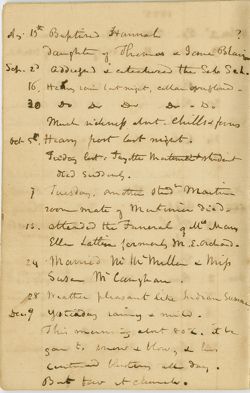 Ag. 13th Baptized Hannah ?
daughter of Thomas & Jane Blair
Sep. 23 Addressed & catechised the Sab. Sch.
16. Heavy rain last night, cellar
20 Do Do Do - Do.
Much sickness abt. Chills & fevers
Oct 5th. Heavy frost last night.
student
died suddenly.
7 Tuesday. Another stud.
room mate of Mortimer died.
15. Attended the Funeral of Mrs. Mary
Ellen formerly M. E. Orchard.
24 Married Mr. McMillen & Miss
Susan McCaughan.
28 Weather pleasant like Indian Summer
Dec 9 Yesterday rainy & mild.
This morning abt 8 o'c. it be
gan to snow & blow, & has
continued all day.
But few at church.